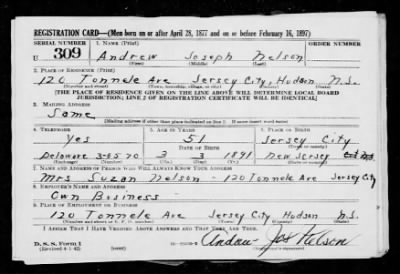 REGISTRATION CARD—(Men born on or after April 28, 1877 and on or before February 16, 1897)
SERIAL NUMBER 1. NAME (Print) ORDER NUMBER
U 309 Andrew Joseph Nelson
(First) (Middle) (Last)
2. PLACE OF RESIDENCE (Print)
120 Tonnele Ave Jersey City, Hudson N.J.
(Number and street) (Town, township, village, or city) (County) (State)
[THE PLACE OF RESIDENCE GIVEN ON THE LINE ABOVE WILL DETERMINE LOCAL BOARD
JURISDICTION; LINE 2 OF REGISTRATION CERTIFICATE WILL BE IDENTICAL]
3. MAILING ADDRESS
Same
[Mailing address if other than place indicated on line 2. If same insert word same]
4. TELEPHONE 5. AGE IN YEARS 6. PLACE OF BIRTH
Yes 51 Jersey City
DATE OF BIRTH (Town or county)
Delaware 3-0570 3 3 1891 New Jersey
(Exchange) (Number) (Mo.) (Day) (Yr.) (State or country)
7. NAME AND ADDRESS OF PERSON WHO WILL ALWAYS KNOW YOUR ADDRESS
Mrs Suzan Nelson - 120 Tonnele Ave Jersey City
8. EMPLOYER'S NAME AND ADDRESS
Own Business
9. PLACE OF EMPLOYMENT OR BUSINESS
120 Tonnele Ave Jersey City Hudson N.J.
(Number and street or R. F. D. number) (Town) (County) (State)
I AFFIRM THAT I HAVE VERIFIED ABOVE ANSWERS AND THAT THEY ARE TRUE.
D. S. S. Form 1
(Revised 4-1-42) (over)
Andrew Jos Nelson